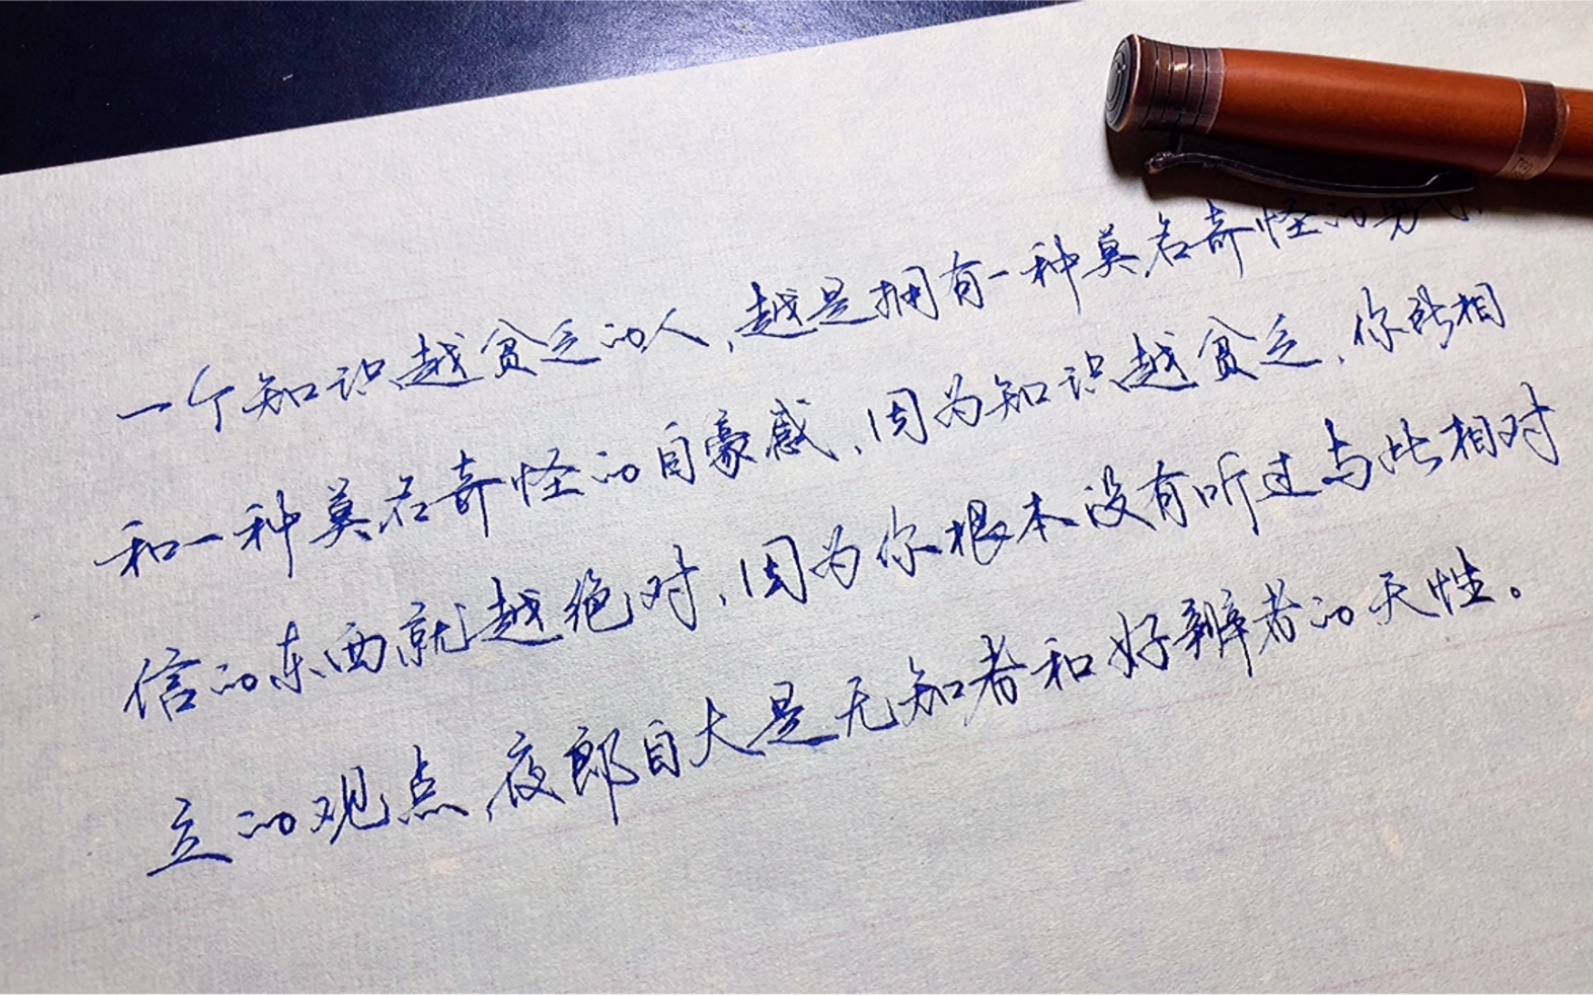 一个知识越贫乏的人，越是拥有一种莫名奇怪的勇
和一种莫名奇怪的自豪感，因为知识越贫乏，你所相
信的东西就越绝对，因为你根本没有听过与此相对
立的观点，夜郎自大是无知者和好辨者的天性。